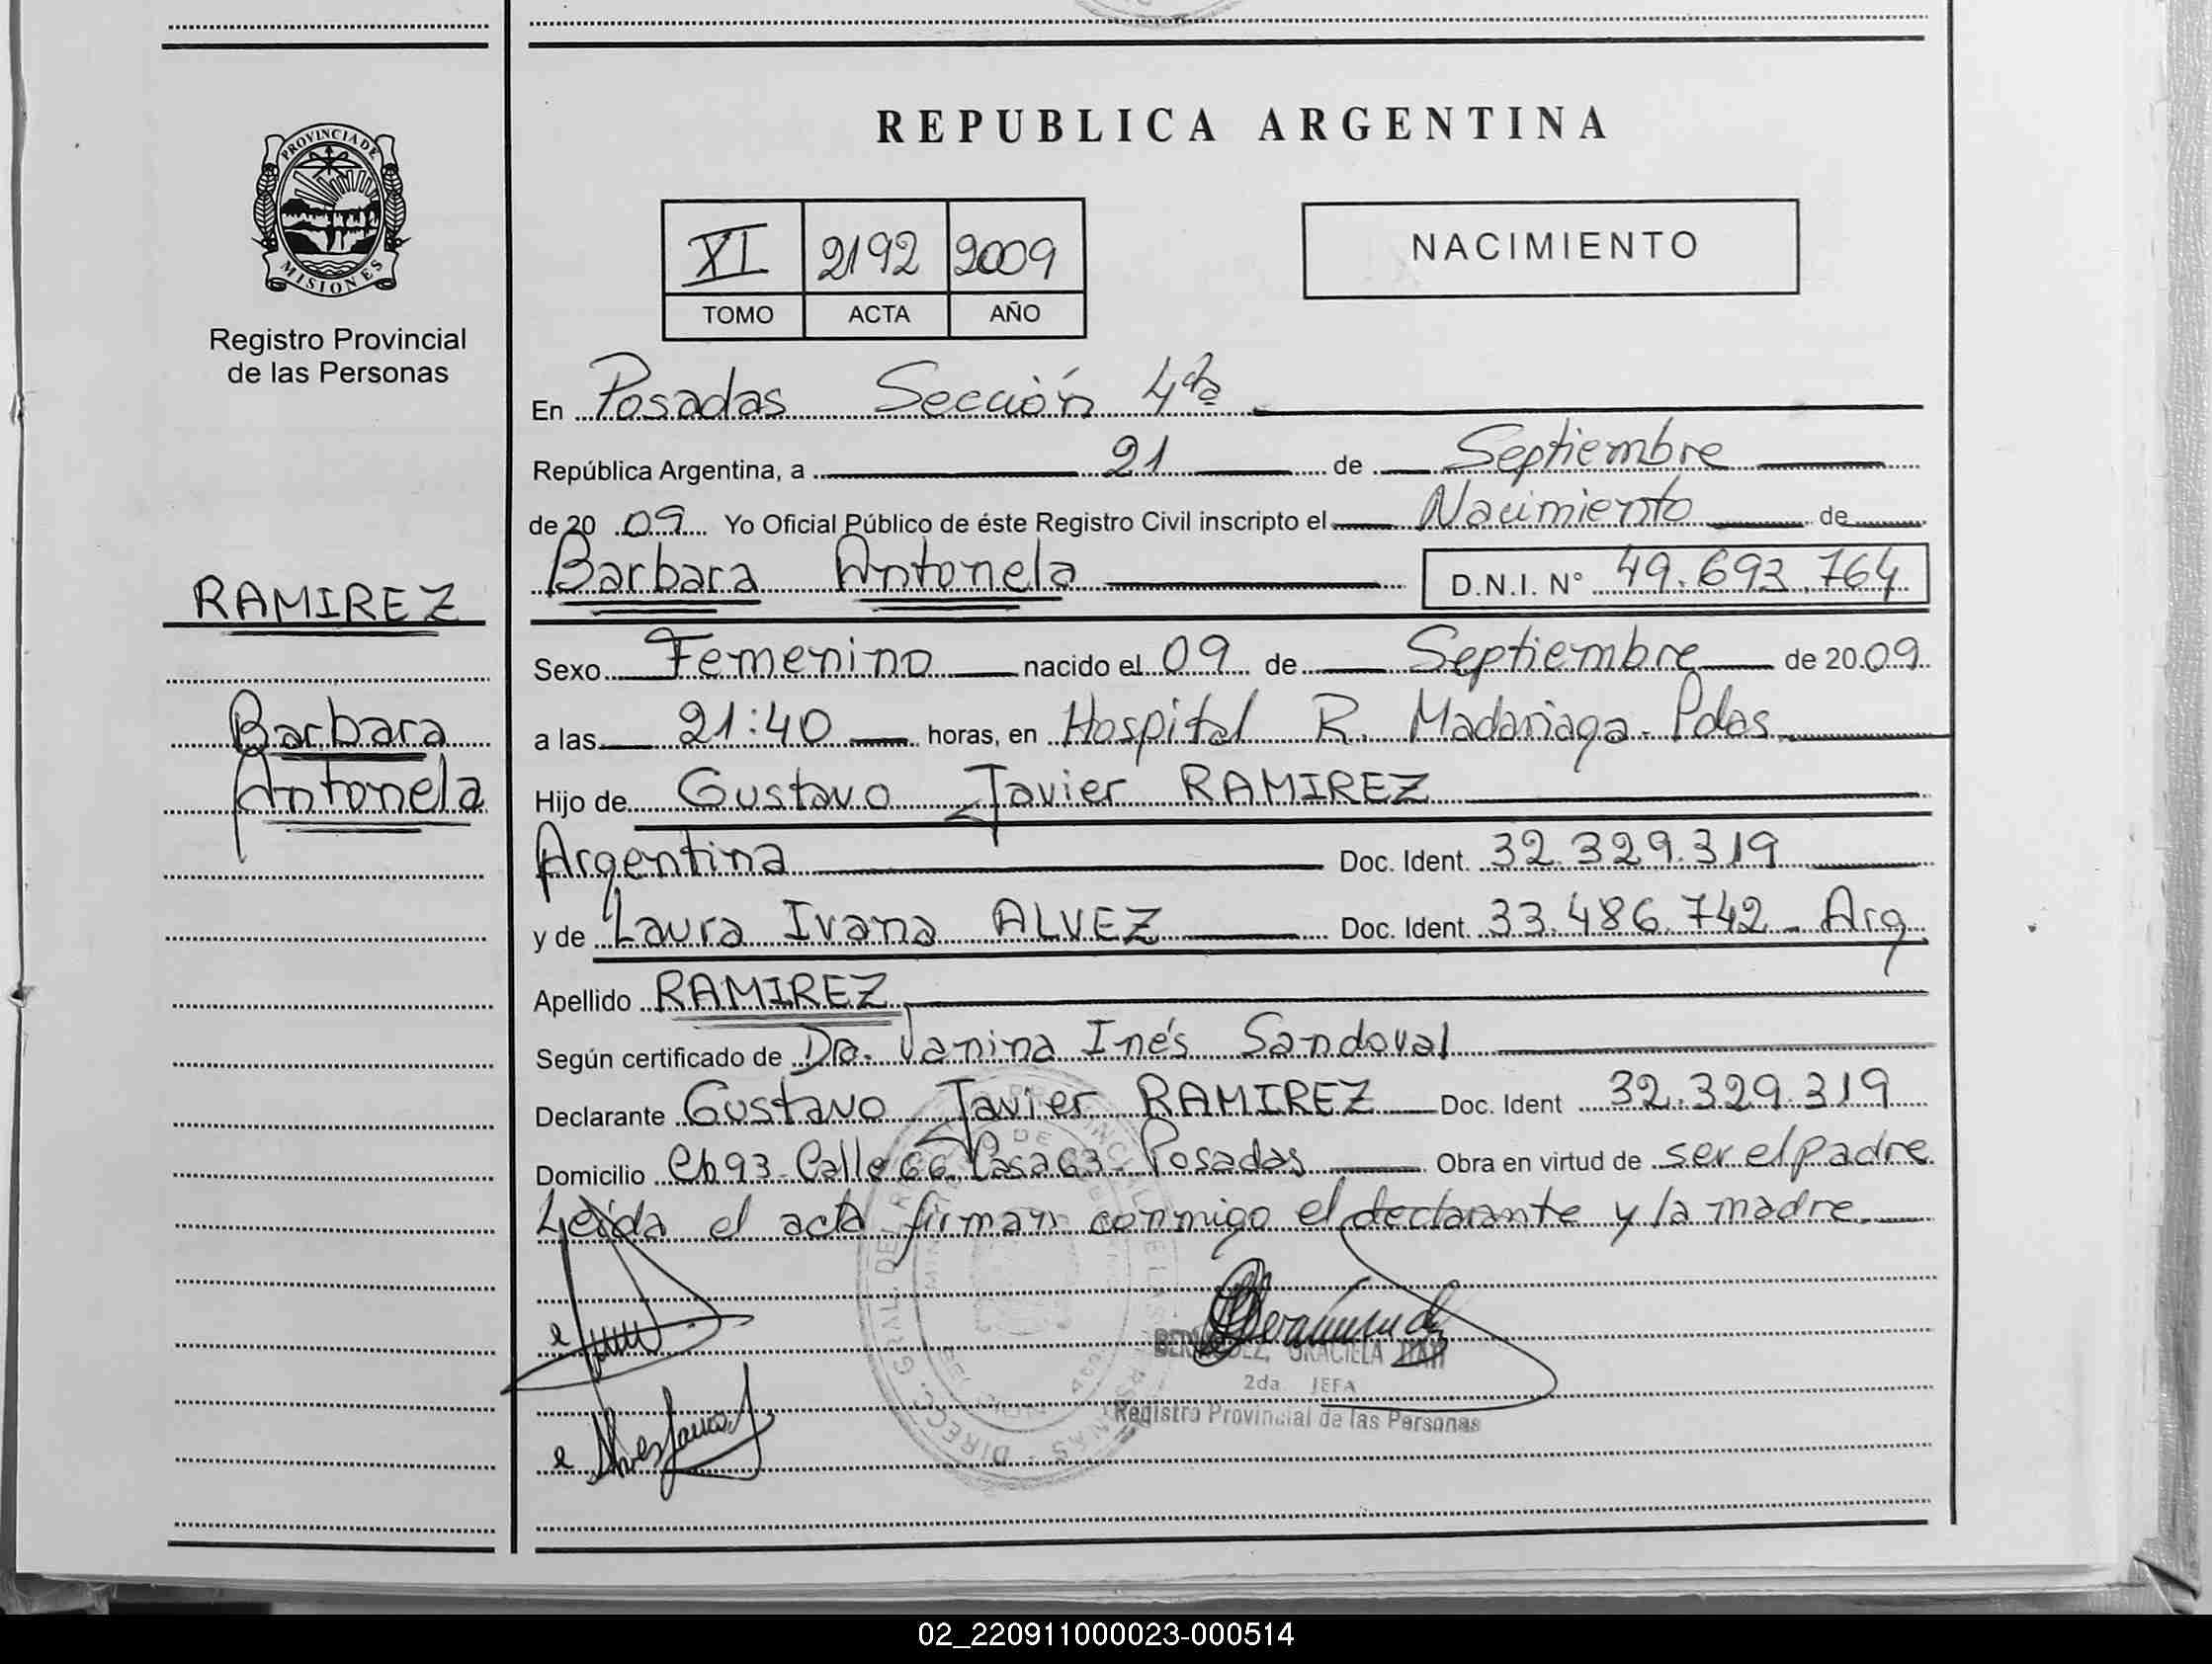 PROVINCIA DE
MISIONES
Registro Provincial
de las Personas
RAMIREZ
Barbara
Antonela
REPUBLICA ARGENTINA
XI 2192 2009
TOMO ACTA AÑO
NACIMIENTO
En Posadas Sección 4ta
República Argentina, a 21 de Septiembre
de 20 09 Yo Oficial Público de éste Registro Civil inscripto el Nacimiento de
Barbara Antonela D.N.I. N° 49.693.764
Sexo Femenino nacido el 09 de Septiembre de 20 09
a las 21:40 horas, en Hospital R. Madariaga - Pdas
Hijo de Gustavo Javier RAMIREZ
Argentina Doc. Ident. 32.329.319
y de Laura Ivana ALVEZ Doc. Ident. 33.486.742 - Arg
Apellido RAMIREZ
Según certificado de Dra. Vanina Inés Sandoval
Declarante Gustavo Javier RAMIREZ Doc. Ident 32.329.319
Domicilio Ch 93 - Calle 66 Casa 63 - Posadas Obra en virtud de ser el padre
Leída el acta firman conmigo el declarante y la madre.
GRACIELA
2da JEFA
Registro Provincial de las Personas
02_220911000023-000514